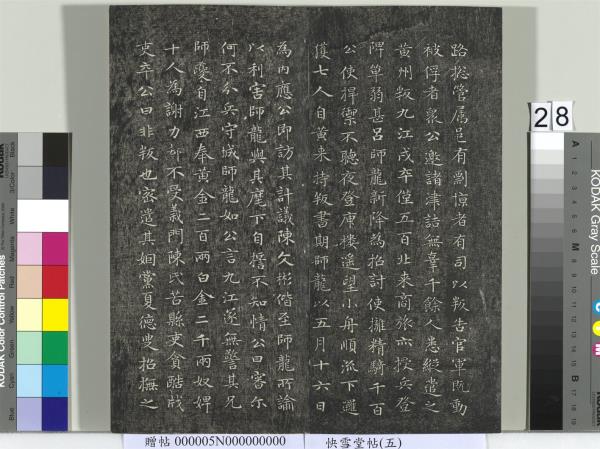 路揔管属邑有剽掠者有司以叛告官軍既動
被俘者衆公邀諸津詰無辜千餘人悉縱遣之
黄州叛九江戍卒僅五百北来商旅亦授兵登
陴單弱甚呂師龍新降為招討使擁精騎千百
公使捍禦不聽夜登庾樓遥望小舟順流下邏
獲七人自黄来持叛書期師龍以五月十六日
為内應公即訪其計議陳文彬偕至師龍所諭
以利害師龍與其麾下自誓不知情公曰審尔
何不分兵守城師龍如公言九江遂無警其兄
師夔自江西奉黄金二百兩白金二千兩奴婢
十人為謝力却不受義門陳氏苦縣吏貪酷戕
吏卒公曰非叛也密遣其姻黨夏德叟招撫之
28
KODAK Color Control Patches
Blue
Cyan
Green
Yellow
Red
Magenta
White
3/Color
Black
KODAK Gray Scale
A 1 2 3 4 5 6 M 8 9 10 11 12 13 14 15 B 17 18 19
C
Y
M
贈帖 000005N000000000
快雪堂帖(五)